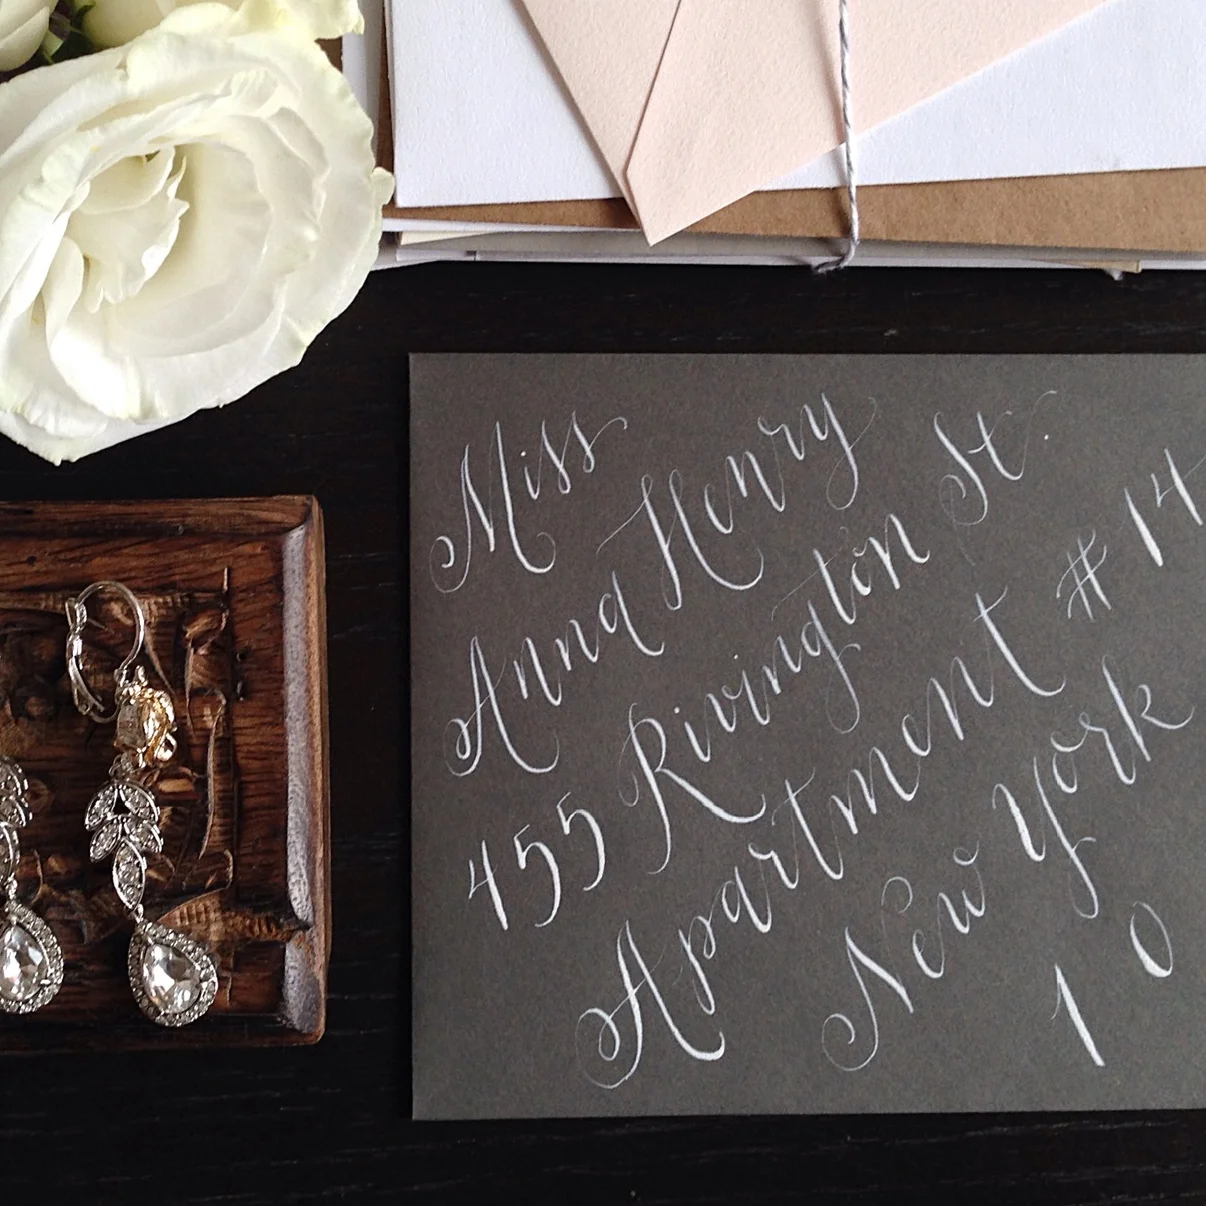 Miss
Anna Henry
455 Rivington St.
Apartment #14
New York
10